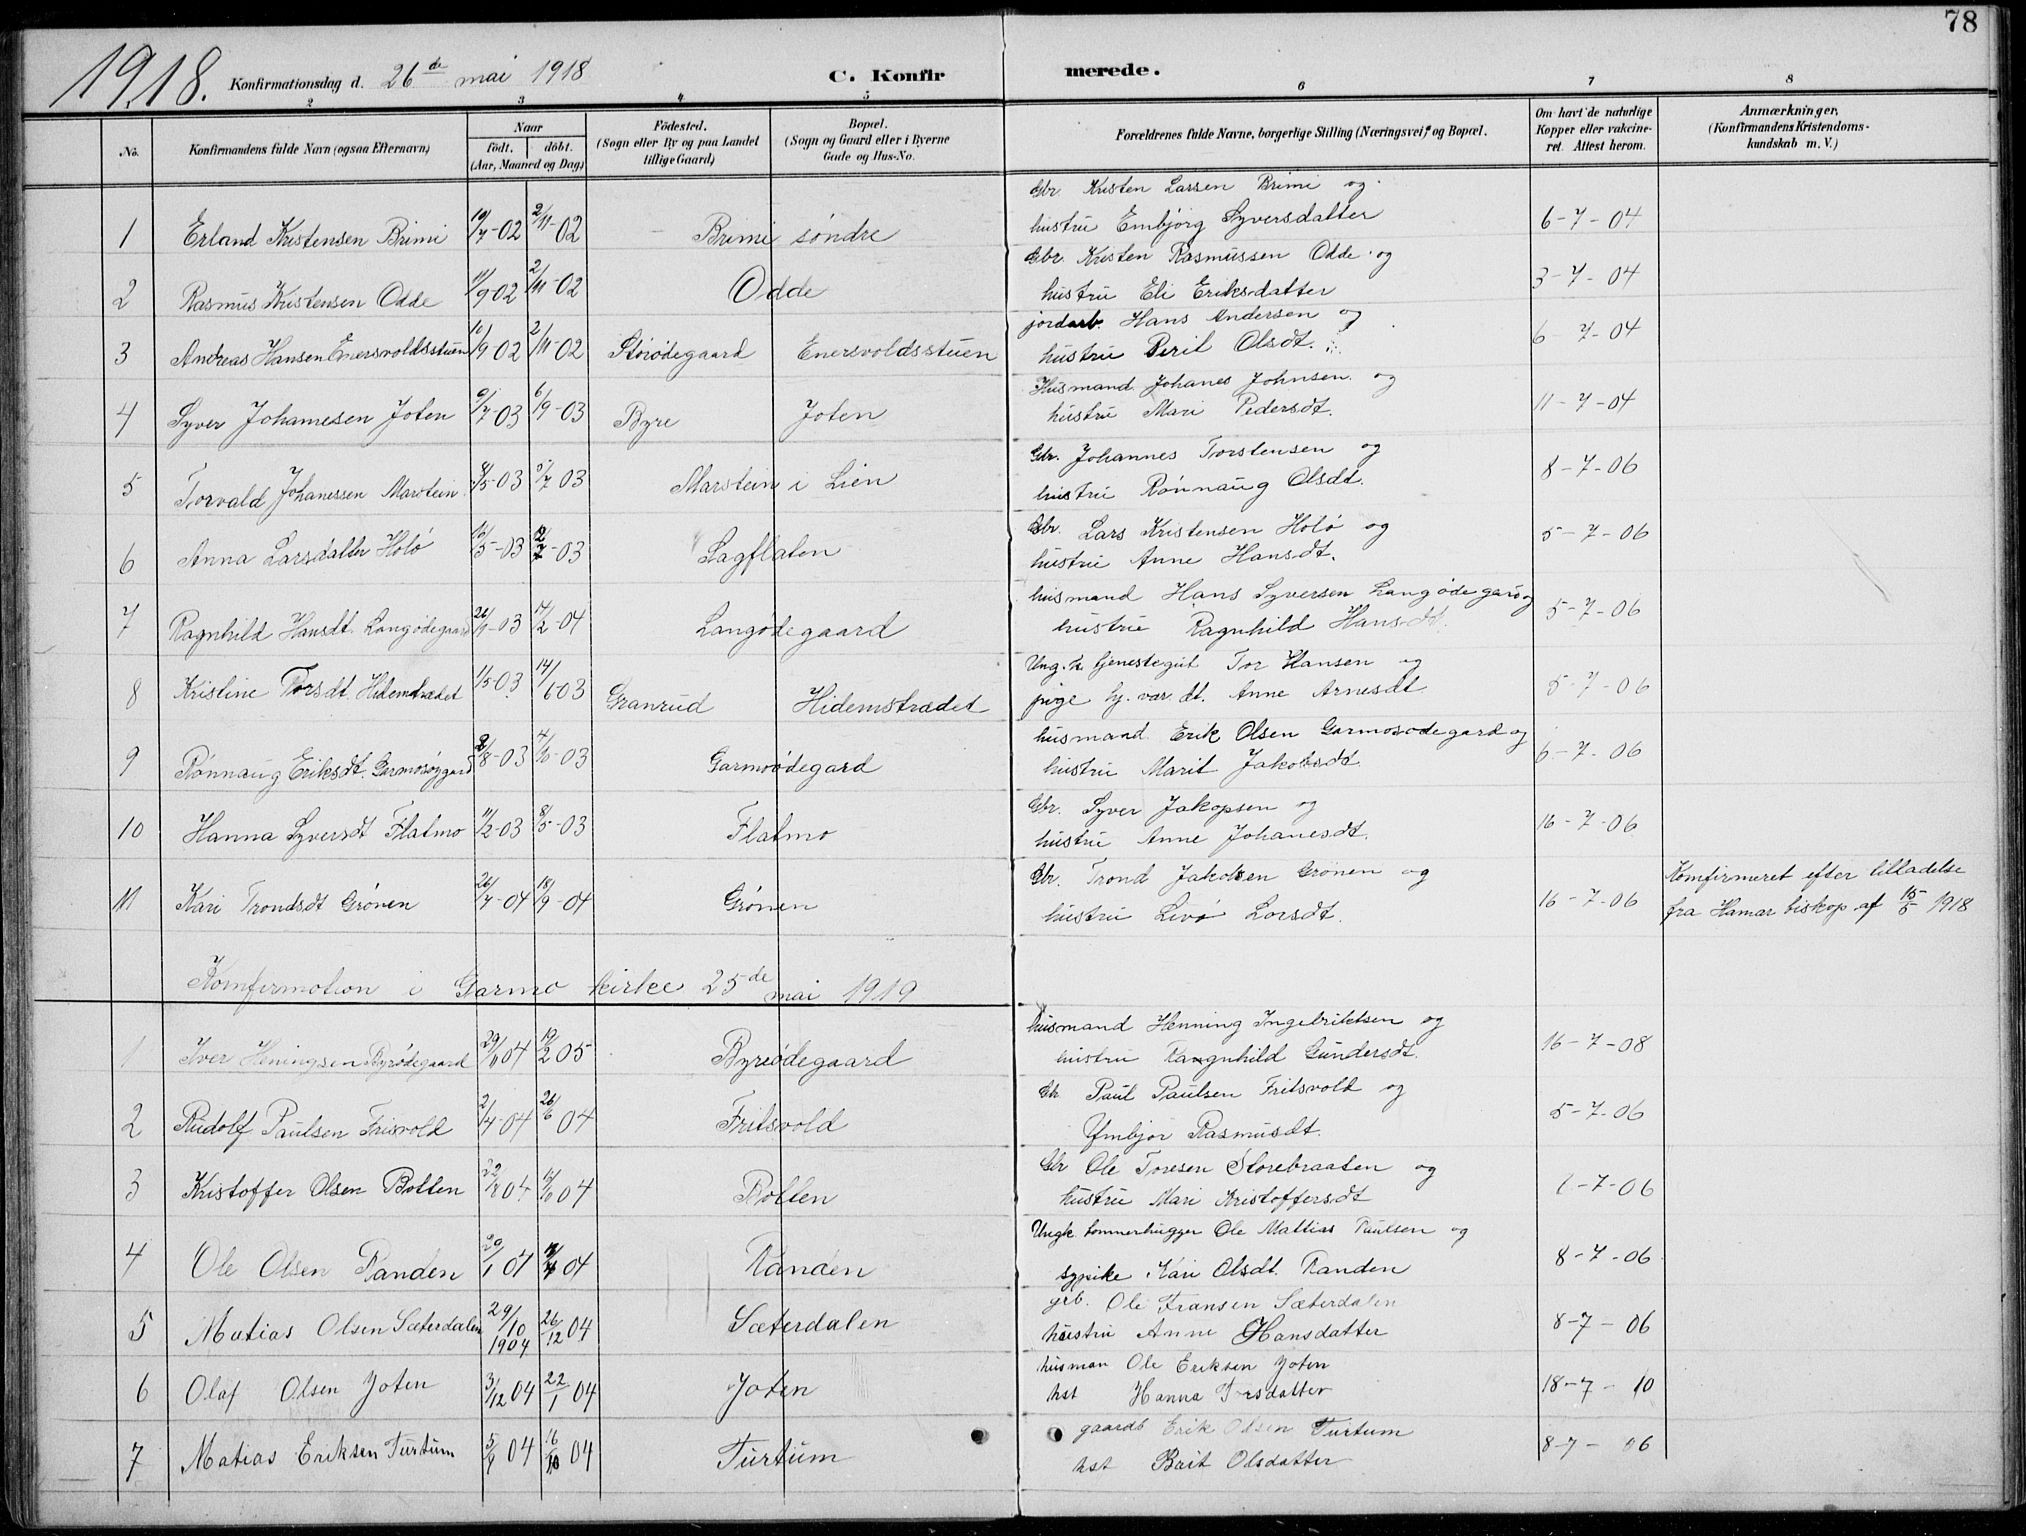 78
1918. Konfirmationsdag d. 26de mai 1918 C. Konfirmerede.
2 3 4 5 6 7 8
No. Konfirmandens fulde Navn (ogsaa Efternavn) Naar födt. döbt. (Aar, Maaned og Dag) Födested. (Sogn eller By og paa Landet tillige Gaard) Bopæl. (Sogn og Gaard eller i Byerne Gade og Hus-No. Forældrenes fulde Navne, borgerlige Stilling (Næringsvei) og Bopæl. Om havt de naturlige Kopper eller vakcineret. Attest herom. Anmærkninger, (Konfirmandens Kristendomskundskab m. V.)
Gbr. Kristen Larsen Brimi og
1 Erland Kristensen Brimi 19/7-02 2/11-02 Brimi søndre hustru Embjørg Syversdatter 6-7-04
Gbr. Kristen Rasmussen Odde og
2 Rasmus Kristensen Odde 11/9-02 2/11-02 Odde hustru Eli Eriksdatter 3-7-04
jordarb. Hans Andersen og
3 Andreas Hansen Enersvoldsstuen 10/9-02 2/11-02 Storødegaard Enersvoldsstuen hustru Peril Olsdt. 6-7-04
Husmand Johanes Johnsen og
4 Syver Johannesen Joten 9/7-03 6/9-03 Byre Joten hustru Mari Pedersdt. 11-7-04
Gbr. Johannes Torstensen og
5 Torvald Johanessen Marstein 8/5-03 5/7 03 Marstein i Lien hustru Rønnaug Olsdt. 8-7-06
Gbr. Lars Kristensen Holø og
6 Anna Larsdatter Holø 15/5-03 12/7-03 Lagflaten hustru Anne Hansdt. 5-7-06
husmand Hans Syversen Langødegard og
7 Ragnhild Hansdt. Langødegaard 26/9-03 14/2-04 Langødegaard hustru Ragnhild Hansdt. 5-7-06
Ung.k. tjenestegut Tor Hansen og
8 Kristine Torsdt. Hidemstrædet 1/5-03 14/6 03 Granrud Hidemstrædet pige hj. var. dt. Anne Arnesdt. 5-7-06
husmand Erik Olsen Garmosødegard og
9 Rønnaug Eriksdt. Garmosøygard 2/8-03 4/10-03 Garmoødegard hustru Marit Jakobsdt. 6-7-06
Gbr. Syver Jakopsen og
10 Hanna Syversdt Flatmo 11/2-03 8/5-03 Flatmo hustru Anne Johanesdt. 16-7-06
Gbr. Trond Jakobsen Grønen og
11 Kari Trondsdt Grønen 26/7-04 18/9-04 Grønen hustru Livø Larsdt. 16-7-06 Komfirmeret efter tilladelse fra Hamar biskop af 15/5 1918
Komfirmation i Garmo kirke 25de mai 1919
husmand Henning Ingebriktsen og
1 Iver Heningsen Byrødegaard 29/11 04 12/2 05 Byreødegaard hustru Rangnhild Gundersdt. 16-7-08
Gbr Paul Paulsen Fritsvold og
2 Rudolf Paulsen Frisvold 2/4-04 26/6 04 Fritsvold Ymbjør Rasmusdt. 5-7-06
Gbr Ole Toresen Storebraaten og
3 Kristoffer Olsen Botten 04 04 Botten hustru Mari Kristoffersdt -7-06
Ungk. tømmerhugger Ole Mattias Paulsen og
4 Ole Olsen Randen 20/1 04 04 Randen sypike Kari Olsdt. Randen 8-7-06
grb. Ole Fransen Sæterdalen
5 Matias Olsen Sæterdalen 29/10 1904 26/12 04 Sæterdalen hustru Anne Hansdatter 8-7-06
husman Ole Eriksen Joten
6 Olaf Olsen Joten 3/12 04 22/1 04 Joten hst Hanna Torsdatter 18-7-10
gaardb Erik Olsen Turtum
7 Matias Eriksen Turtum 5/9 04 16/10 04 Turtum hst Barit Olsdatter 8-7-06